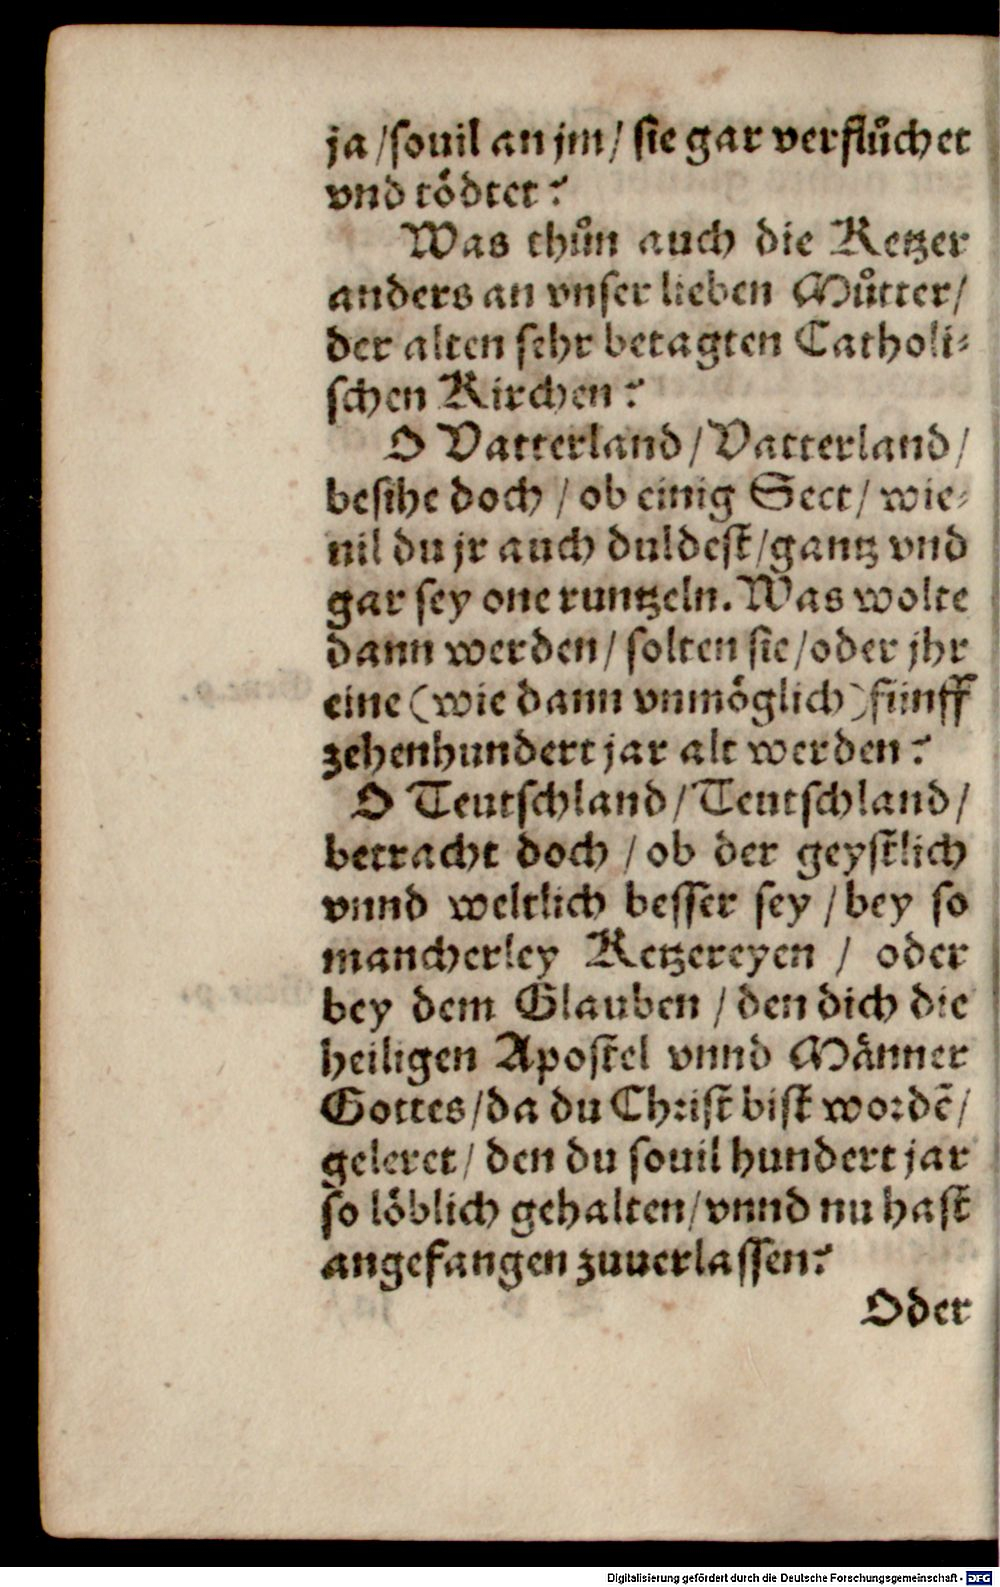 ja / souil an jm / sie gar verflůchet
vnd tödtet?
Was thůn auch die Ketzer
anders an vnser lieben Můtter /
der alten sehr betagten Catholi-
schen Kirchen?
O Vatterland / Vatterland /
besihe doch / ob einig Sect / wie-
uil du jr auch duldest / gantz vnd
gar sey one runtzeln. Was wolte
dann werden / solten sie / oder jhr
eine (wie dann vnmöglich) fünff
zehenhundert jar alt werden?
O Teutschland / Teutschland /
betracht doch / ob der geystlich
vnnd weltlich besser sey / bey so
mancherley Ketzereyen / oder
bey dem Glauben / den dich die
heiligen Apostel vnnd Männer
Gottes / da du Christ bist wordẽ /
geleret / den du souil hundert jar
so löblich gehalten / vnnd nu hast
angefangen zuuerlassen?
Oder
Digitalisierung gefördert durch die Deutsche Forschungsgemeinschaft - DFG